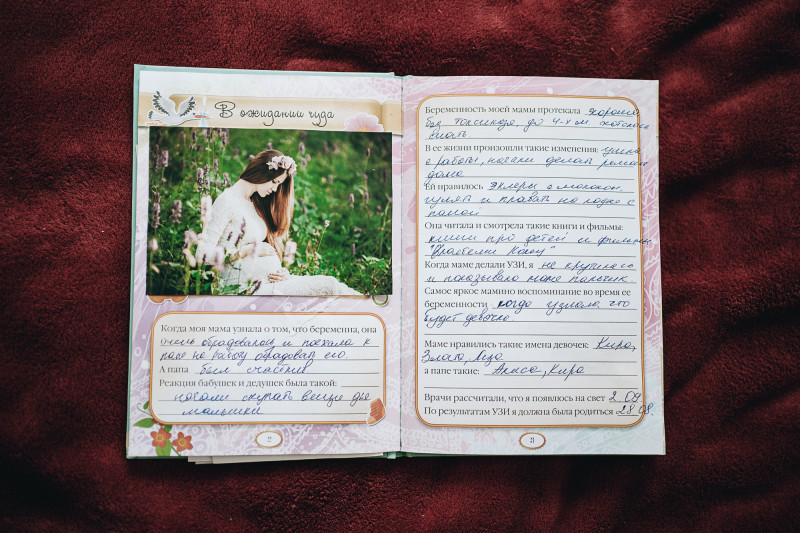 В ожидании чуда
Когда моя мама узнала о том, что беременна, она
очень обрадовалась и поехала к
папе на работу обрадовать его.
А папа был счастлив
Реакция бабушек и дедушек была такой:
начали скупать вещи для
малышки
2
Беременность моей мамы протекала хорошо,
без токсикоза, до 4-х м. хотелось
спать
В ее жизни произошли такие изменения: ушла
с работы, начали делать ремонт
дома
Ей нравилось эклеры с молоком,
гулять и плавать на лодке с
папой
Она читала и смотрела такие книги и фильмы:
книги про детей и фильмы
Когда маме делали УЗИ, я не крутилась
и показывала маме пальчик.
Самое яркое мамино воспоминание во время ее
беременности когда узнала, что
будет девочка.
Маме нравились такие имена девочек Кира,
Злата,
а папе такие: Алиса, Кира
Врачи рассчитали, что я появлюсь на свет 2.09.
По результатам УЗИ я должна была родиться 28.08.
3